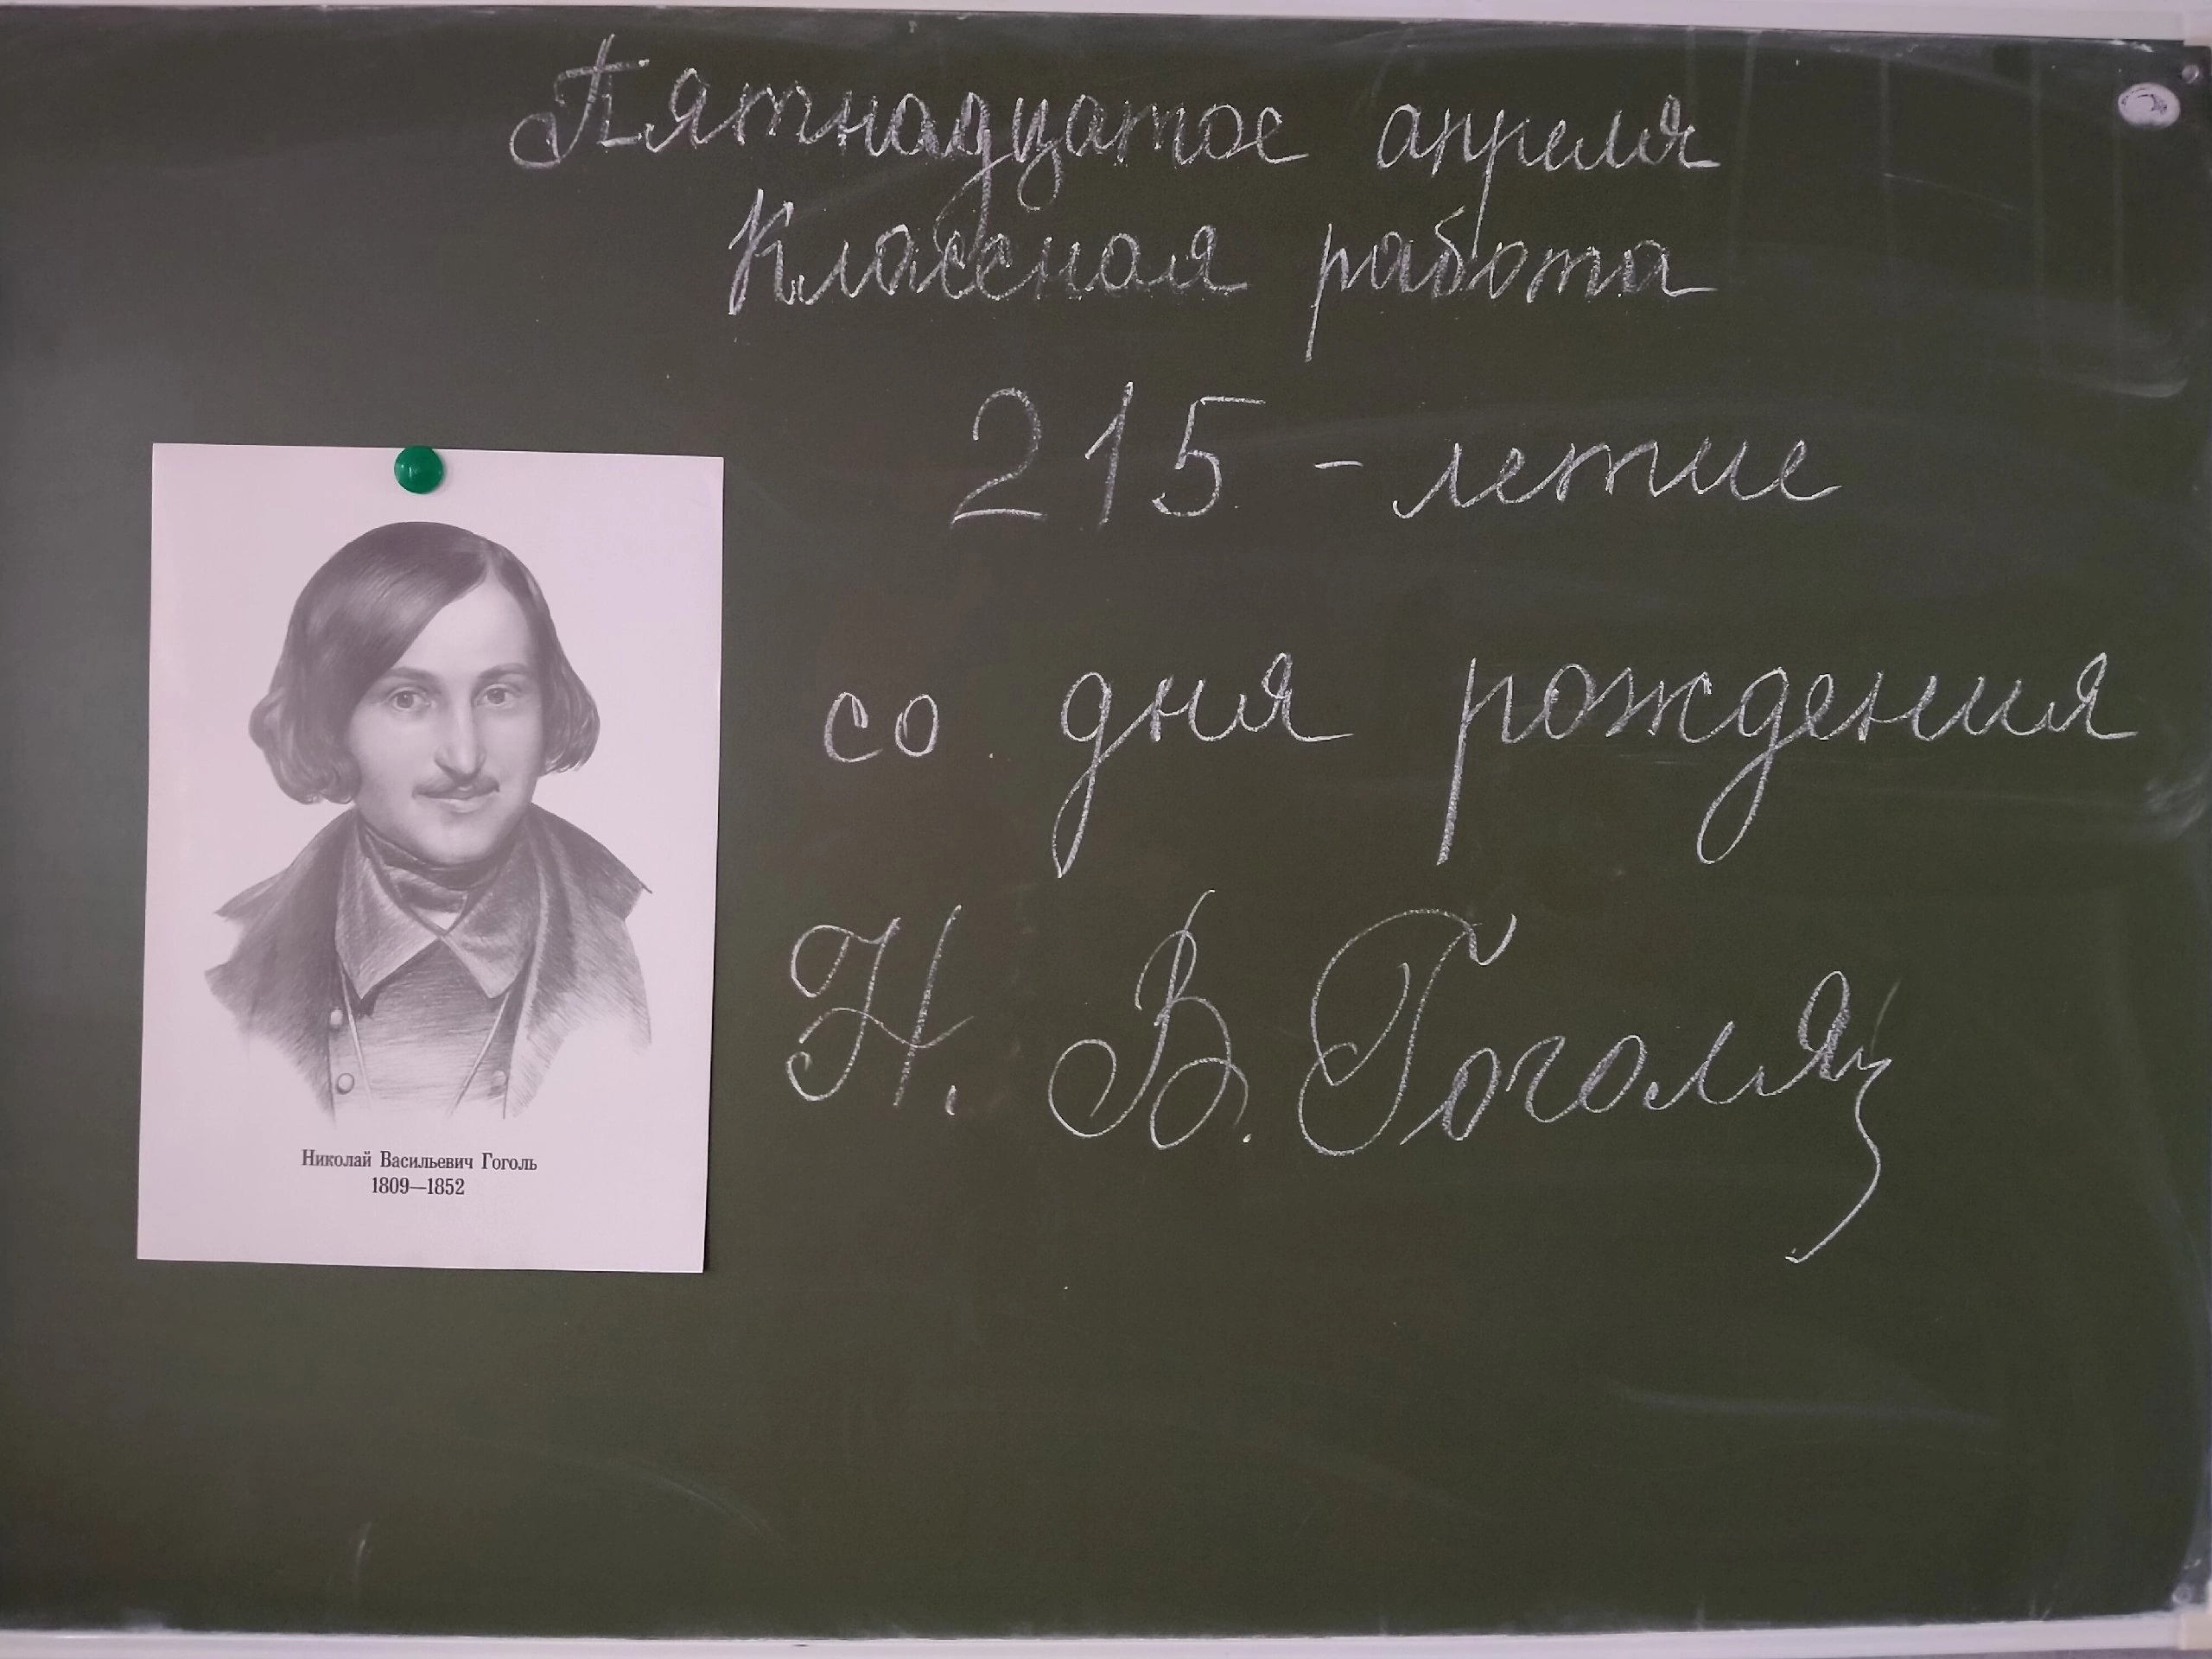 Пятнадцатое апреля
Классная работа
215-летие
со дня рождения
Н. В. Гоголя
Николай Васильевич Гоголь
1809—1852